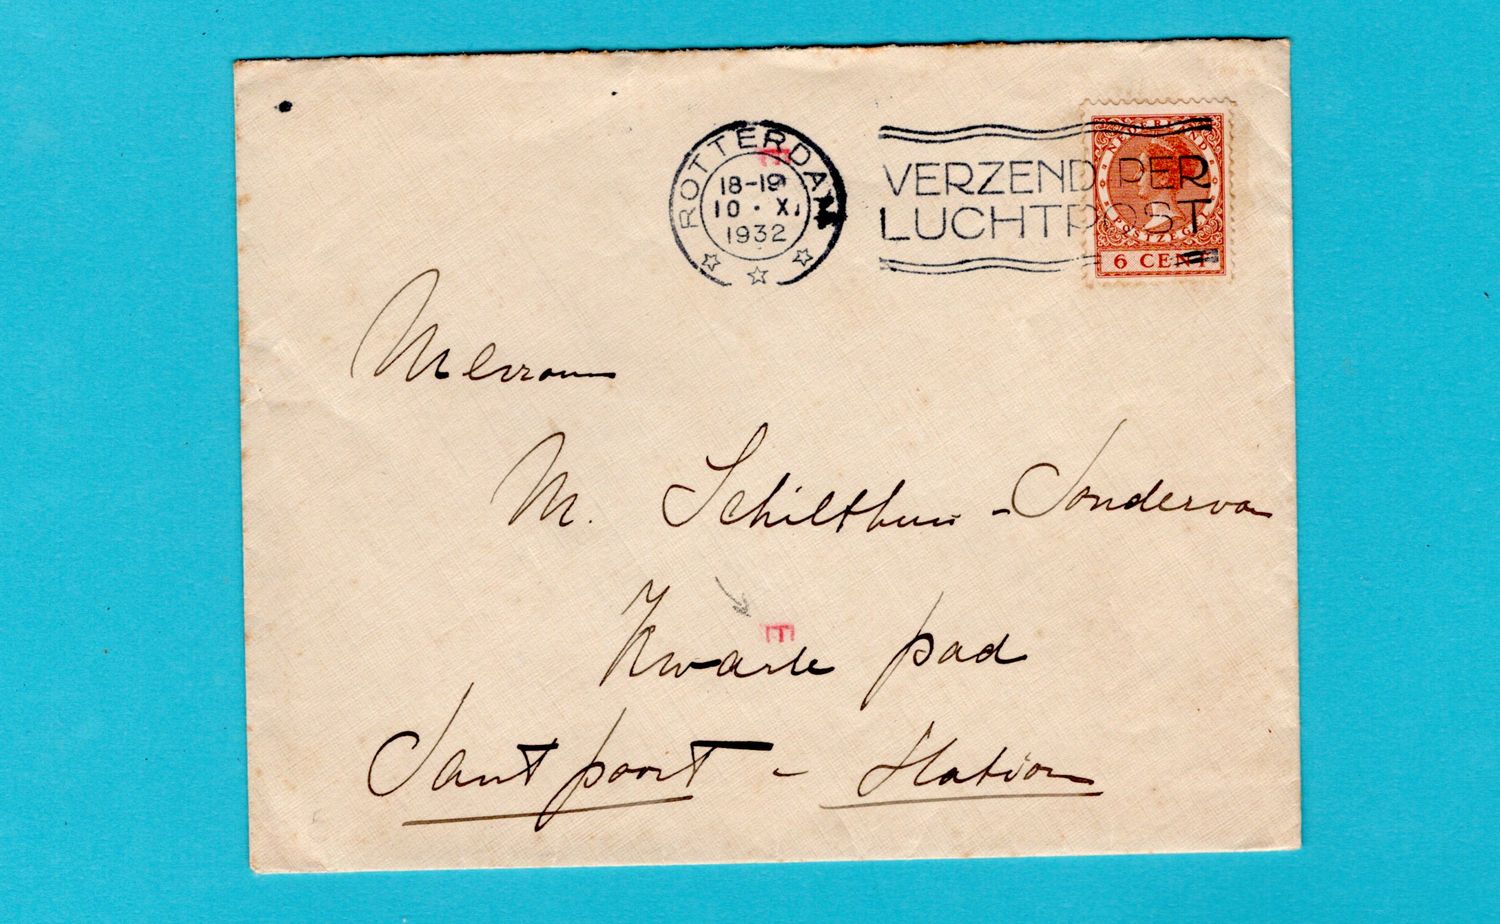 ROTTERDAM
18-19
10 · XI
1932
VERZEND PER
LUCHTPOST
NEDERLAND
POSTZEGEL
6 CENT
E
Mevrouw
M. Schilthuis - Sondervan
E
Kwarle pad
Santpoort - Station